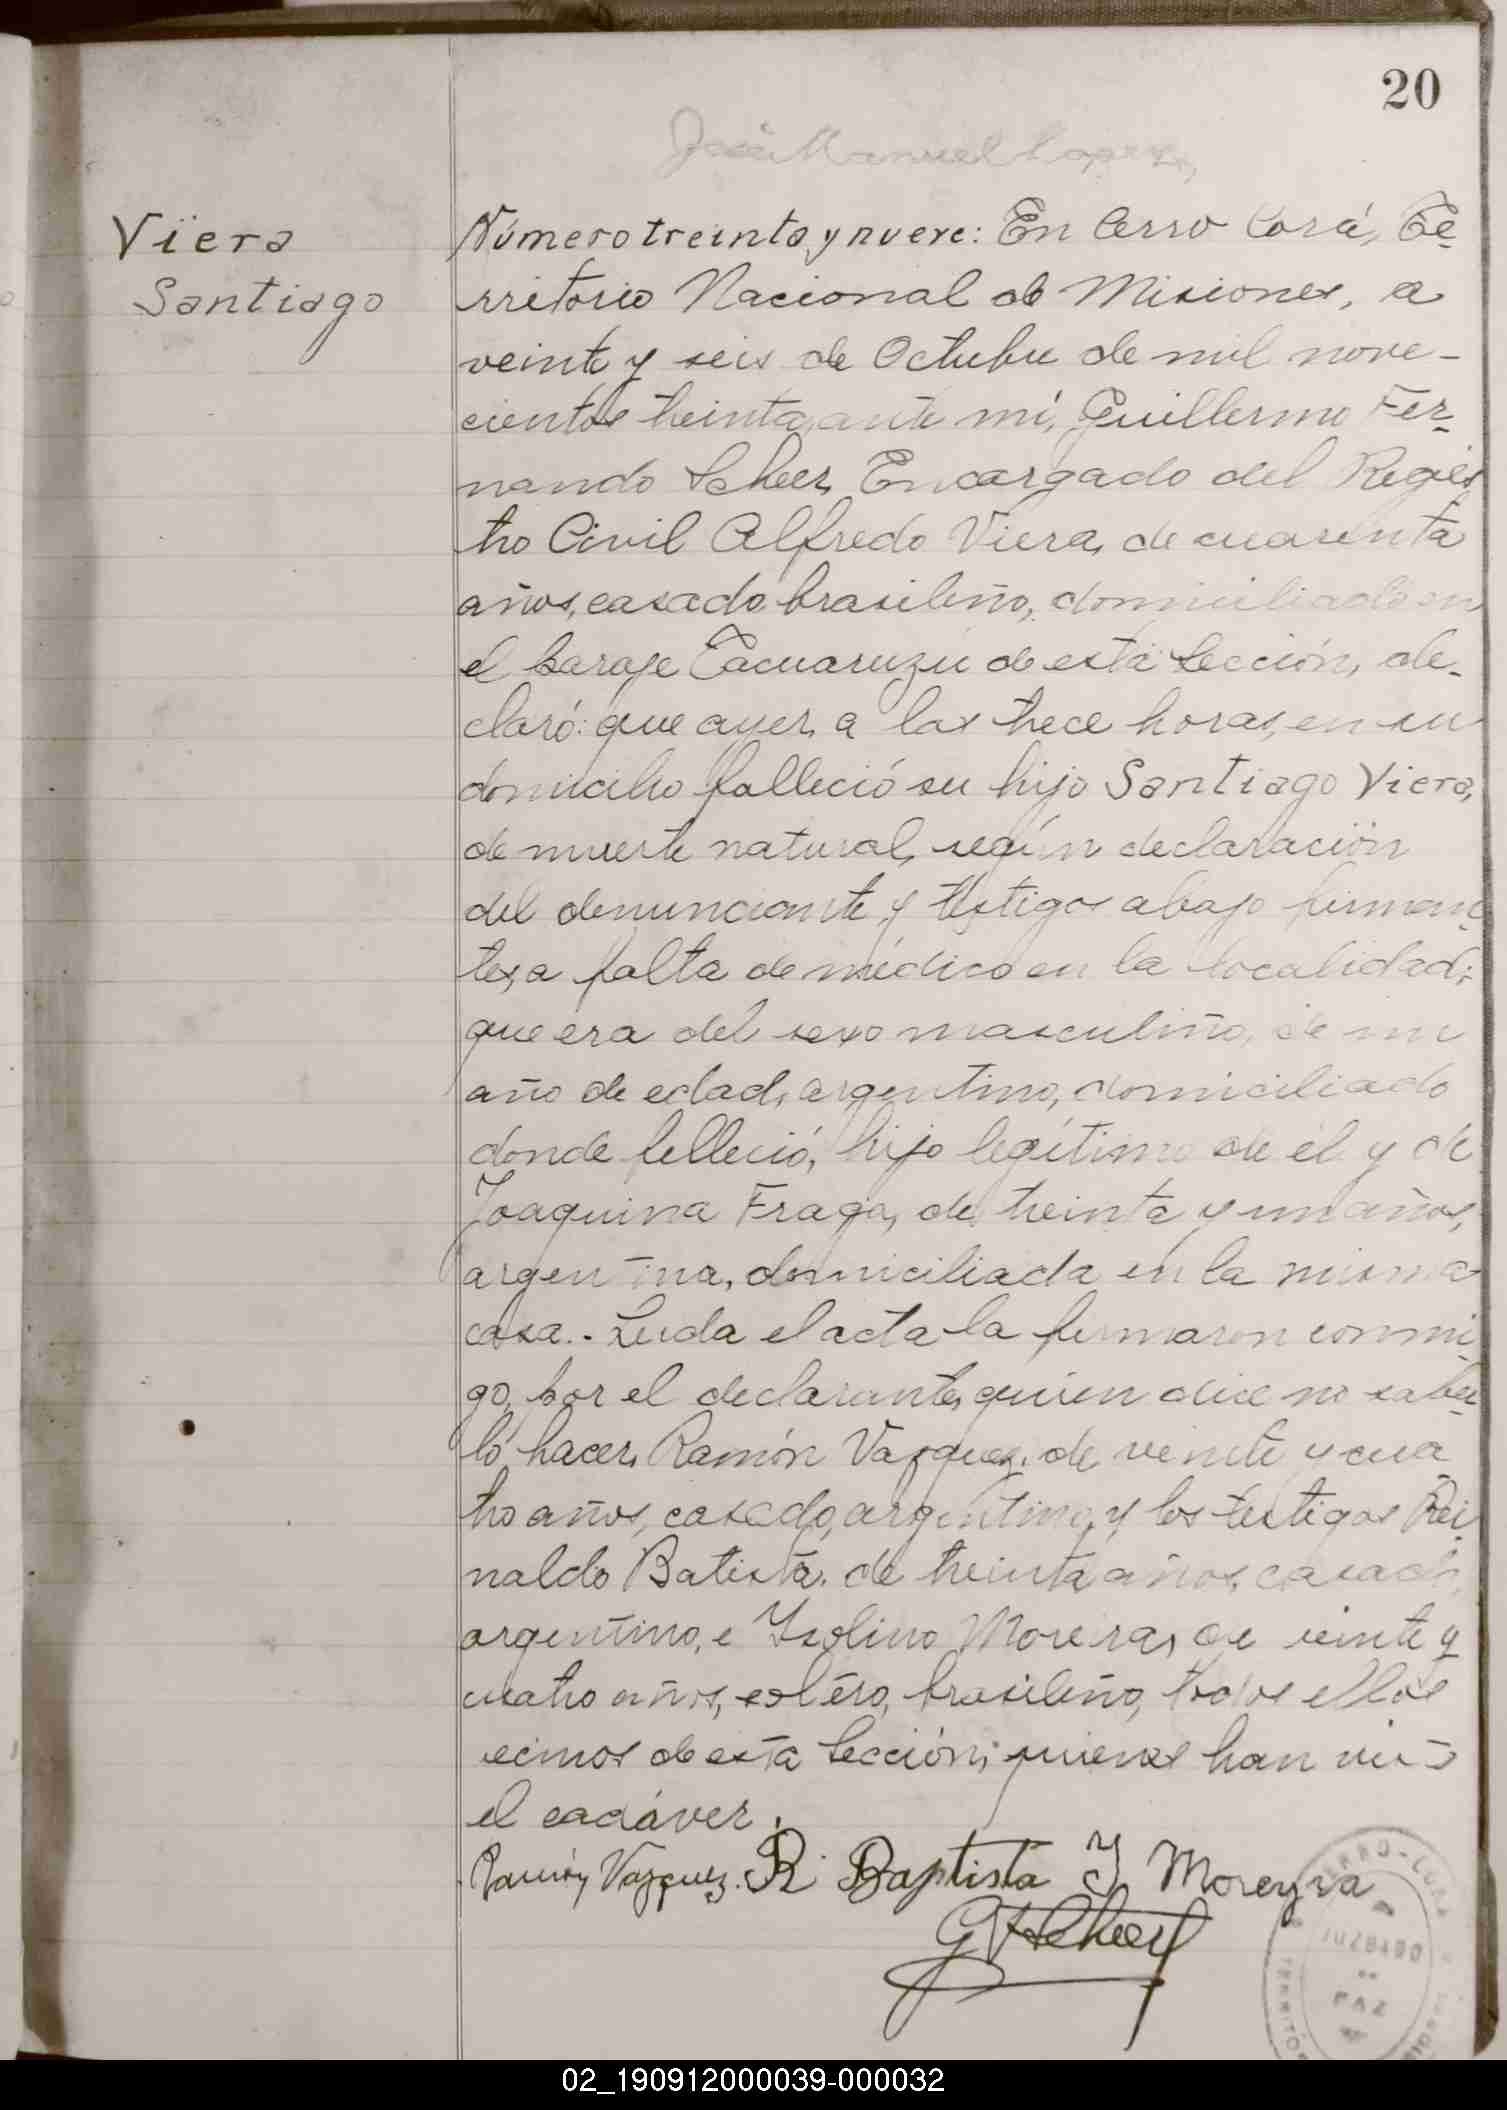 20
José Manuel Lopez,
Viera
Santiago
Número treinta y nueve: En Cerro Corá, Te-
rritorio Nacional de Misiones, a
veinte y seis de Octubre de mil nove-
cientos treinta, ante mí, Guillermo Fer-
nando Scheer, Encargado del Regis
tro Civil Alfredo Viera, de cuarenta
años, casado, brasileño, domiciliado en
el paraje Tacuaruzú de esta sección, de-
claró: que ayer, a las trece horas, en su
domicilio falleció su hijo Santiago Viera,
de muerte natural, según declaración
del denunciante y testigos abajo firman
tes, a falta de médico en la localidad;
que era del sexo masculino, de un
año de edad, argentino, domiciliado
donde felleció, hijo legítimo de él y de
Joaquina Fraga, de treinta y un años,
argentina, domiciliada en la misma
casa.- Leida el acta la firmaron conmi-
go, por el declarante, quien dice no saber-
lo hacer, Ramón Vazquez, de veinte y cua
tro años, casado, argentino, y los testigos Rei-
naldo Batista, de treinta años, casado,
argentino, e Isolino Moreira, de veinte y
cuatro años, soltero, brasileño, todos ellos
vecinos de esta sección, quienes han visto
el cadáver.
Ramón Vazquez. R. Baptista I Moreyra
G F Scheer
CERRO-CORÁ
JUZGADO
DE
PAZ
TERRITO